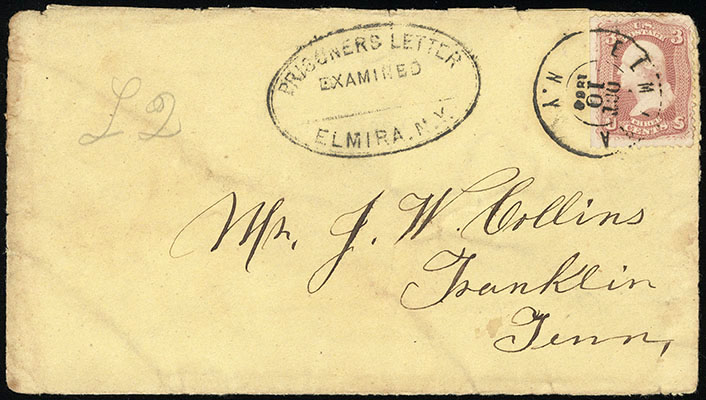 PRISONERS LETTER
EXAMINED
ELMIRA. N.Y.
ELMIRA
N.Y.
OCT
10
1864
3
3
U.S. POSTAGE
THREE
CENTS
U
S
L 2
Mr. J. W. Collins
Franklin
Tenn,